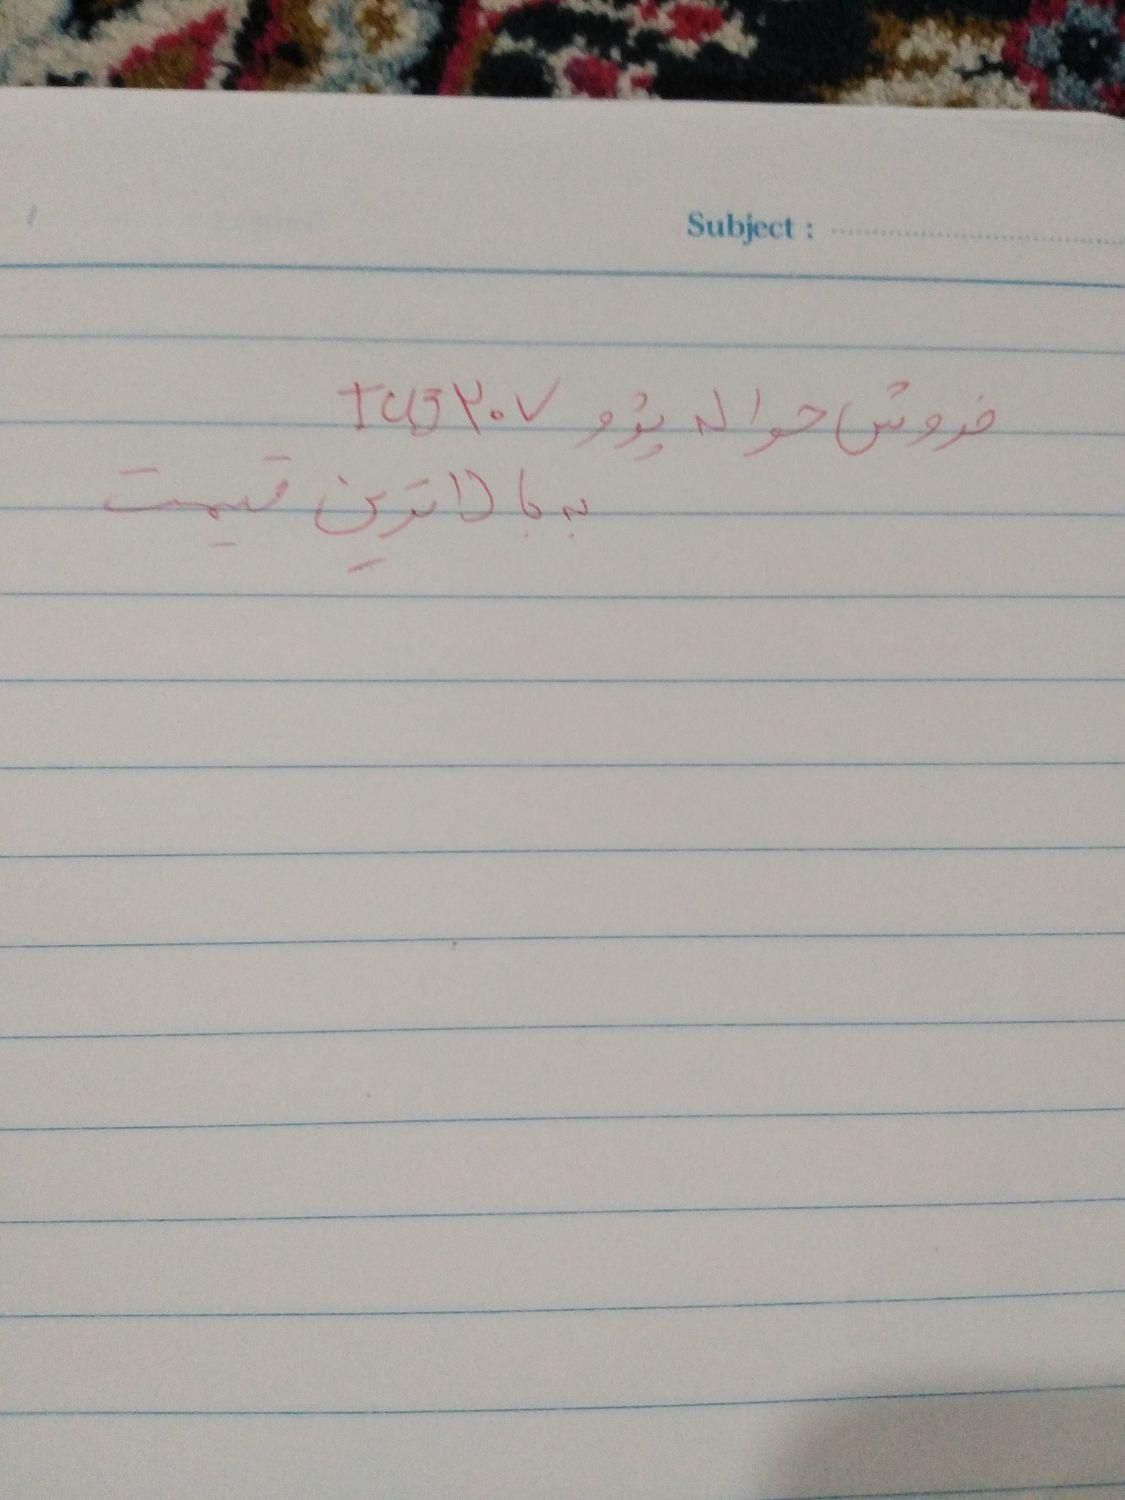 Subject :
فروش حواله پژو ۲۰۷ TU3
به بالاترین قیمت